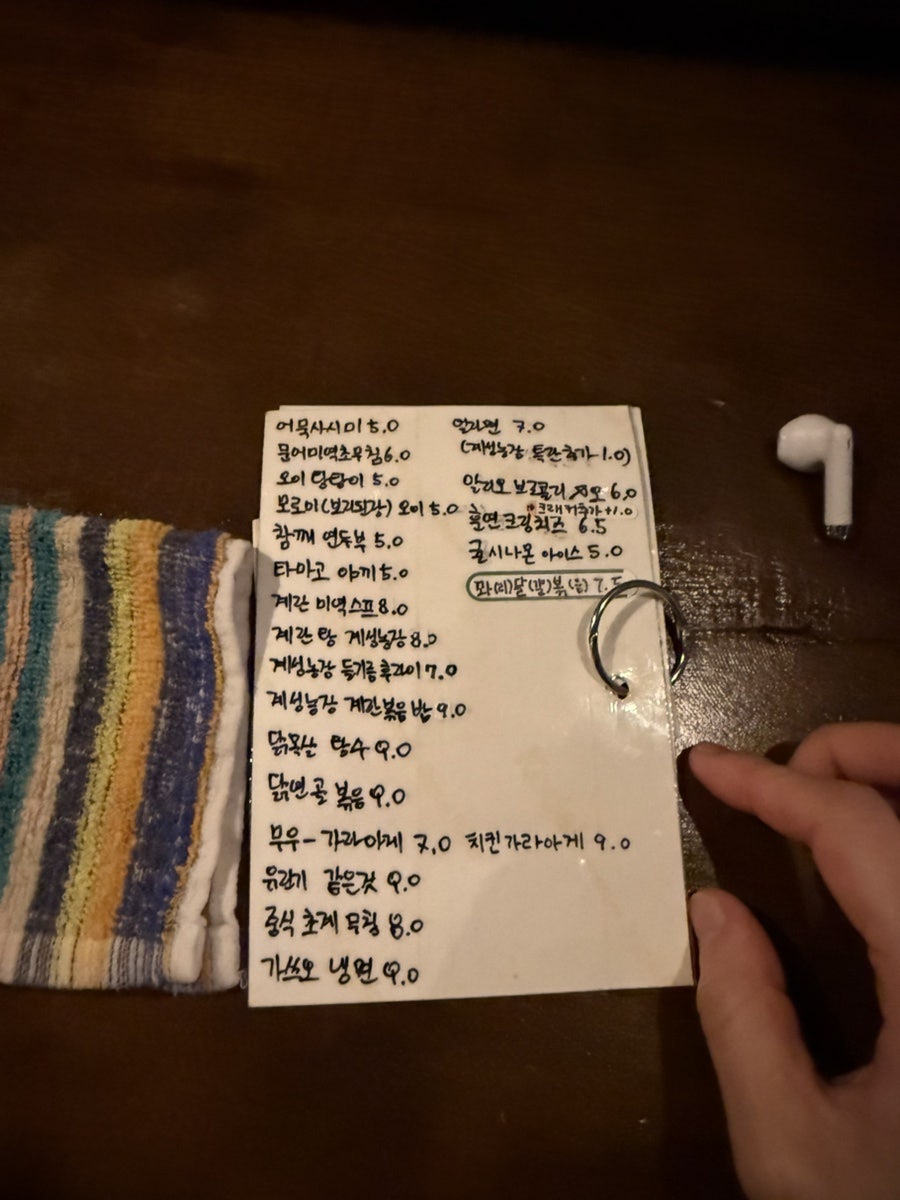 어묵사시미 5.0
문어미역초무침 6.0
오이 탕탕이 5.0
모로미(보리된장) 오이 5.0
참깨 연두부 5.0
타마고 야끼 5.0
계란 미역스프 8.0
계란탕 계성농장 8.0
계성농장 들기름후라이 7.0
계성농장 계란볶음밥 9.0
닭목살 탕수 9.0
닭연골 볶음 9.0
무우-가라아게 7.0 치킨가라아게 9.0
유린기 같은것 9.0
중식 초계 무침 8.0
가쓰오 냉면 9.0
얼라면 7.0
(계성농장 특란추가-1.0)
알리오 브로콜리 6.0
크래커추가+1.0
훈연크림치즈 6.5
귤시나몬 아이스 5.0
꽈(리)닭(갈)볶(음) 7.5